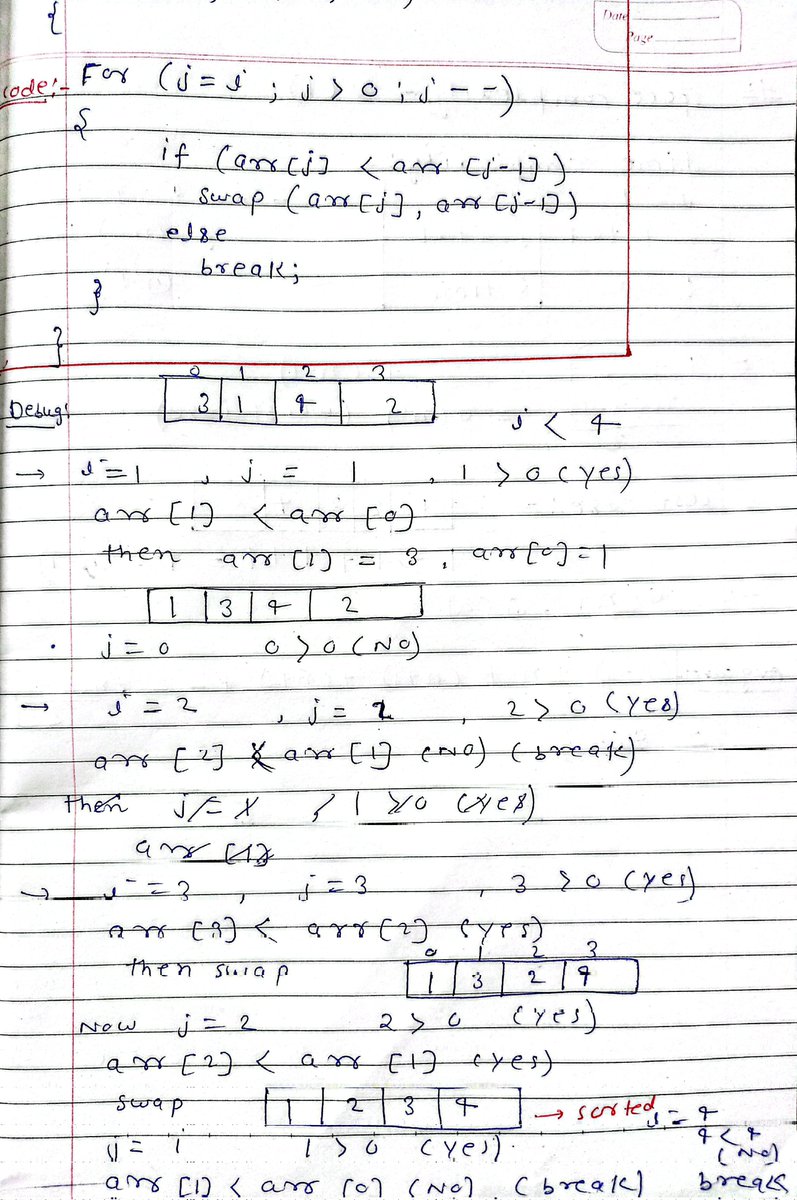 {
Date
Page
Code:- For (j = i ; j > 0 ; j - -)
{
if (arr[j] < arr [j-1])
swap (arr[j], arr [j-1])
else
break;
}
}
0 1 2 3
Debug: 3 1 4 2
i < 4
→ i = 1 , j = 1 , 1 > 0 (yes)
arr [1] < arr [0]
then arr [1] = 3 , arr[0] = 1
1 3 4 2
. j = 0 0 > 0 (NO)
→ i = 2 , j = 2 , 2 > 0 (yes)
arr [2] < arr [1] (NO) (break)
then j = 1 , 1 > 0 (yes)
arr [1]
→ i = 3 , j = 3 , 3 > 0 (yes)
arr [3] < arr [2] (yes)
0 1 2 3
then swap 1 3 2 4
Now j = 2 2 > 0 (yes)
arr [2] < arr [1] (yes)
swap 1 2 3 4 → sorted
i = 4
4 < 4
(NO)
break
j = 1 1 > 0 (yes).
arr [1] < arr [0] (NO) (break)